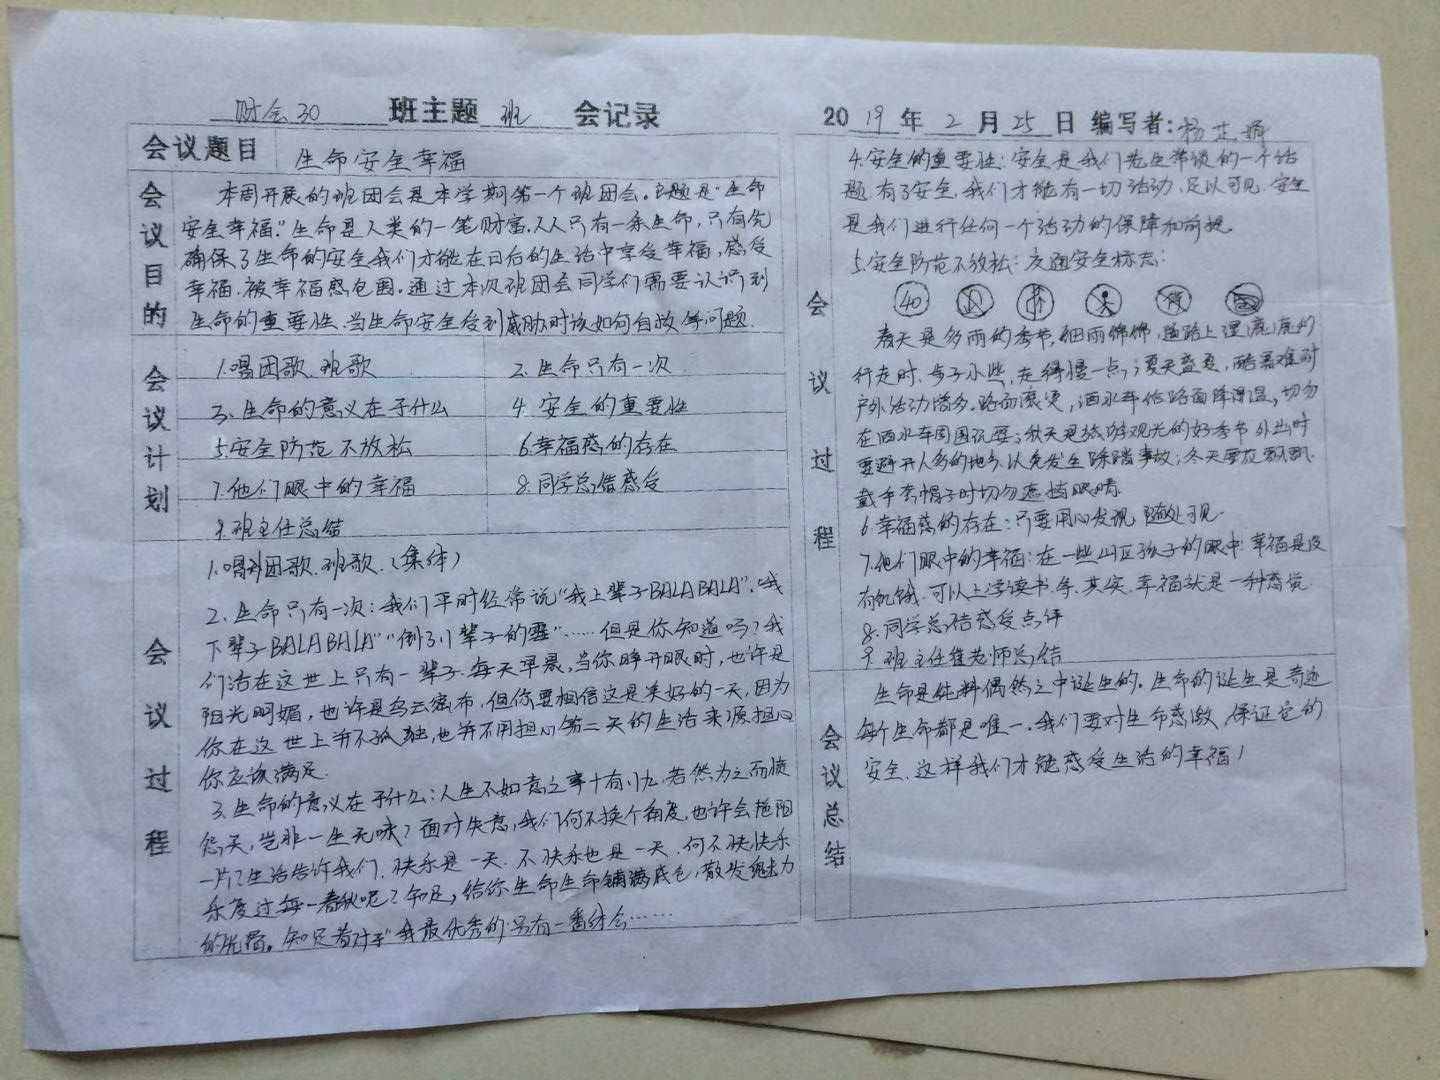 财会30 班主题 班 会记录
会议题目 生命安全幸福
会议目的
本周开展的班团会是本学期第一个班团会。主题是“生命
安全幸福”生命是人类的一笔财富,人人只有一条生命,只有先
确保了生命的安全我们才能在日后的生活中享受幸福,感受
幸福.被幸福感包围.通过本次班团会同学们需要认识到
生命的重要性.当生命安全受到威胁时该如何自救等问题.
会议计划
1.唱团歌.班歌 2.生命只有一次
3.生命的意义在于什么 4.安全的重要性
5.安全防范不放松 6.幸福感的存在
7.他们眼中的幸福 8.同学总结感受
9.班主任总结
会议过程
1.唱团歌.班歌.(集体)
2.生命只有一次:我们平时经常说“我上辈子BALABALA”.“我
下辈子BALABALA”“倒了八辈子的霉”……但是你知道吗?我
们活在这世上只有一辈子.每天早晨,当你睁开眼时,也许是
阳光明媚,也许是乌云密布,但你要相信这是美好的一天,因为
你在这世上并不孤独,也并不用担心第二天的生活来源担心
你应该满足.
3.生命的意义在于什么:人生不如意之事十有八九.若然为之而愤
怨天,岂非一生无味?面对失意,我们何不换个角度,也许会艳阳
一片?生活告诉我们.快乐是一天.不快乐也是一天.何不快快乐
乐度过每一春秋呢?知足,给你生命生命铺满底色,散发魅力
的光
知足者对于“我最优秀的”另有一番体会……
20 19 年 2 月 25 日 编写者:杨芷
会议过程
4.安全的重要性:安全是我们先生常谈的一个话
题.有了安全.我们才能有一切活动.足以可见.安全
是我们进行任何一个活动的保障和前提.
5.安全防范不放松:交通安全标志:
40
春天是多雨的季节,细雨绵绵,道路上湿漉漉的
行走时.步子小些,走得慢一点;夏天盛夏,酷暑难耐
户外活动增多.路面滚烫,洒水车给路面降温,切勿
在洒水车周围玩耍;秋天是旅游观光的好季节 外出时
要避开人多的地方,以免发生踩踏事故;冬天雪花飘飘.
戴手套帽子时切勿遮挡眼睛.
6.幸福感的存在:只要用心发现 随处可见.
7.他们眼中的幸福:在一些山区孩子的眼中.幸福是没
有饥饿.可以上学读书.等.其实.幸福就是一种感觉
8.同学总结感受点评
9.班主任崔老师总结
会议总结
生命是纯粹偶然之中诞生的.生命的诞生是奇迹
每个生命都是唯一.我们要对生命感激.保证它的
安全.这样我们才能感受生活的幸福!